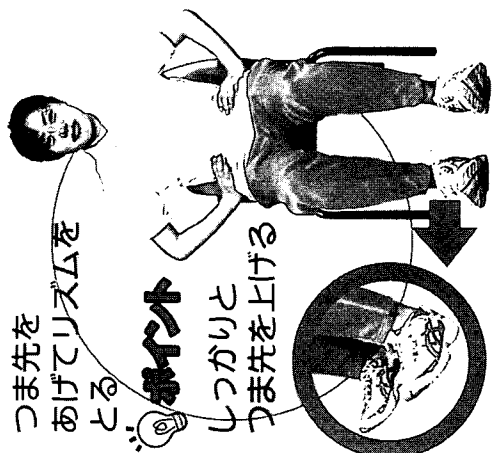 つま先を
あげてリズムを
とる
ポイント
しっかりと
つま先を上げる